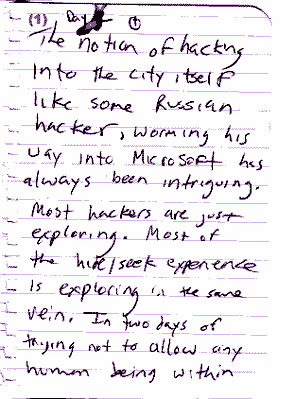 (1) Day 1
The notion of hacking
into the city itself
like some Russian
hacker, worming his
way into Microsoft has
always been intriguing.
Most hackers are just
exploring. Most of
the hide/seek experience
is exploring in the same
vein. In two days of
trying not to allow any
human being within